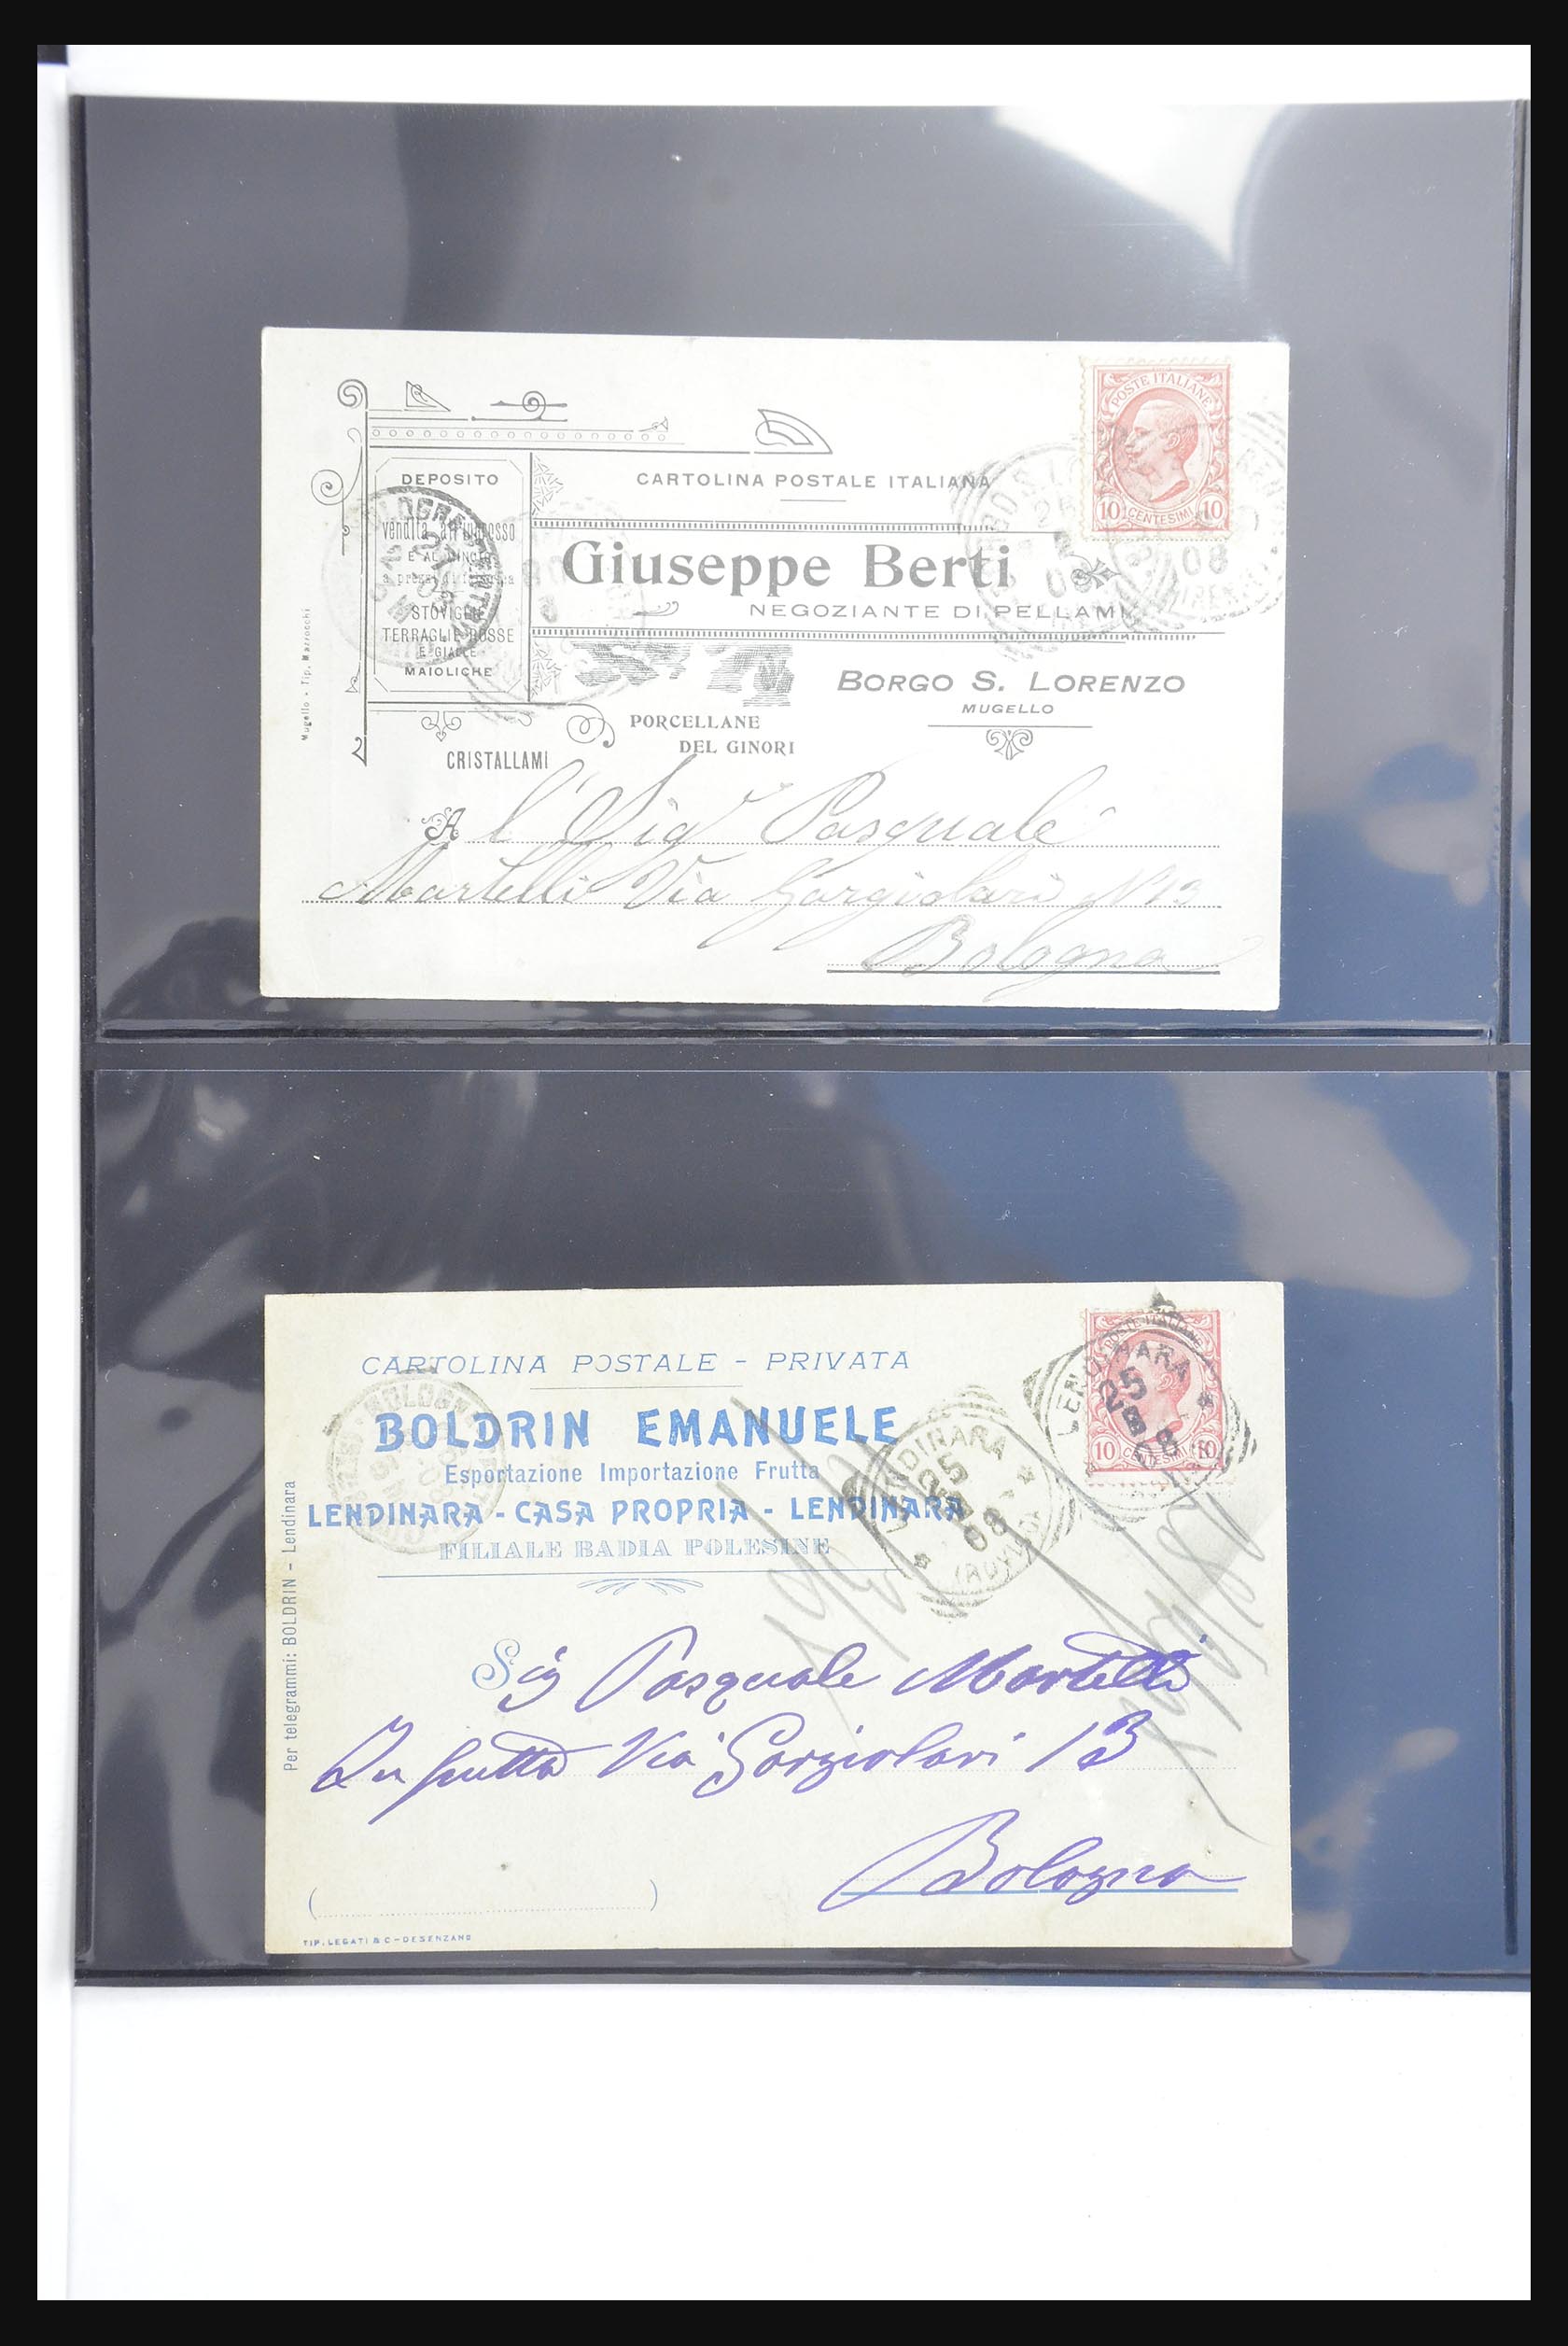 POSTE ITALIANE
10 CENTESIMI 10
CARTOLINA POSTALE ITALIANA
DEPOSITO
Vendita all'ingrosso
STOVIGLIE
TERRAGLIE ROSSE
E GIALLE
MAIOLICHE
Giuseppe Berti
NEGOZIANTE DI PELLAMI
BORGO S. LORENZO
MUGELLO
PORCELLANE
DEL GINORI
CRISTALLAMI
Mugello - Tip. Mazzocchi
A l' Sigr Pasquale
Martelli Via Gargiolari N 13
Bologna
POSTE ITALIANE
10 CENTESIMI 10
LENDINARA
25 8 08
CARTOLINA POSTALE - PRIVATA
BOLDRIN EMANUELE
Esportazione Importazione Frutta
LENDINARA - CASA PROPRIA - LENDINARA
FILIALE BADIA POLESINE
LENDINARA
25 8 08
(ROVIGO)
Per telegrammi: BOLDRIN - Lendinara
Sig Pasquale Martelli
Via Gorgiolari 13
Bologna
TIP. LEGATI & C - DESENZANO